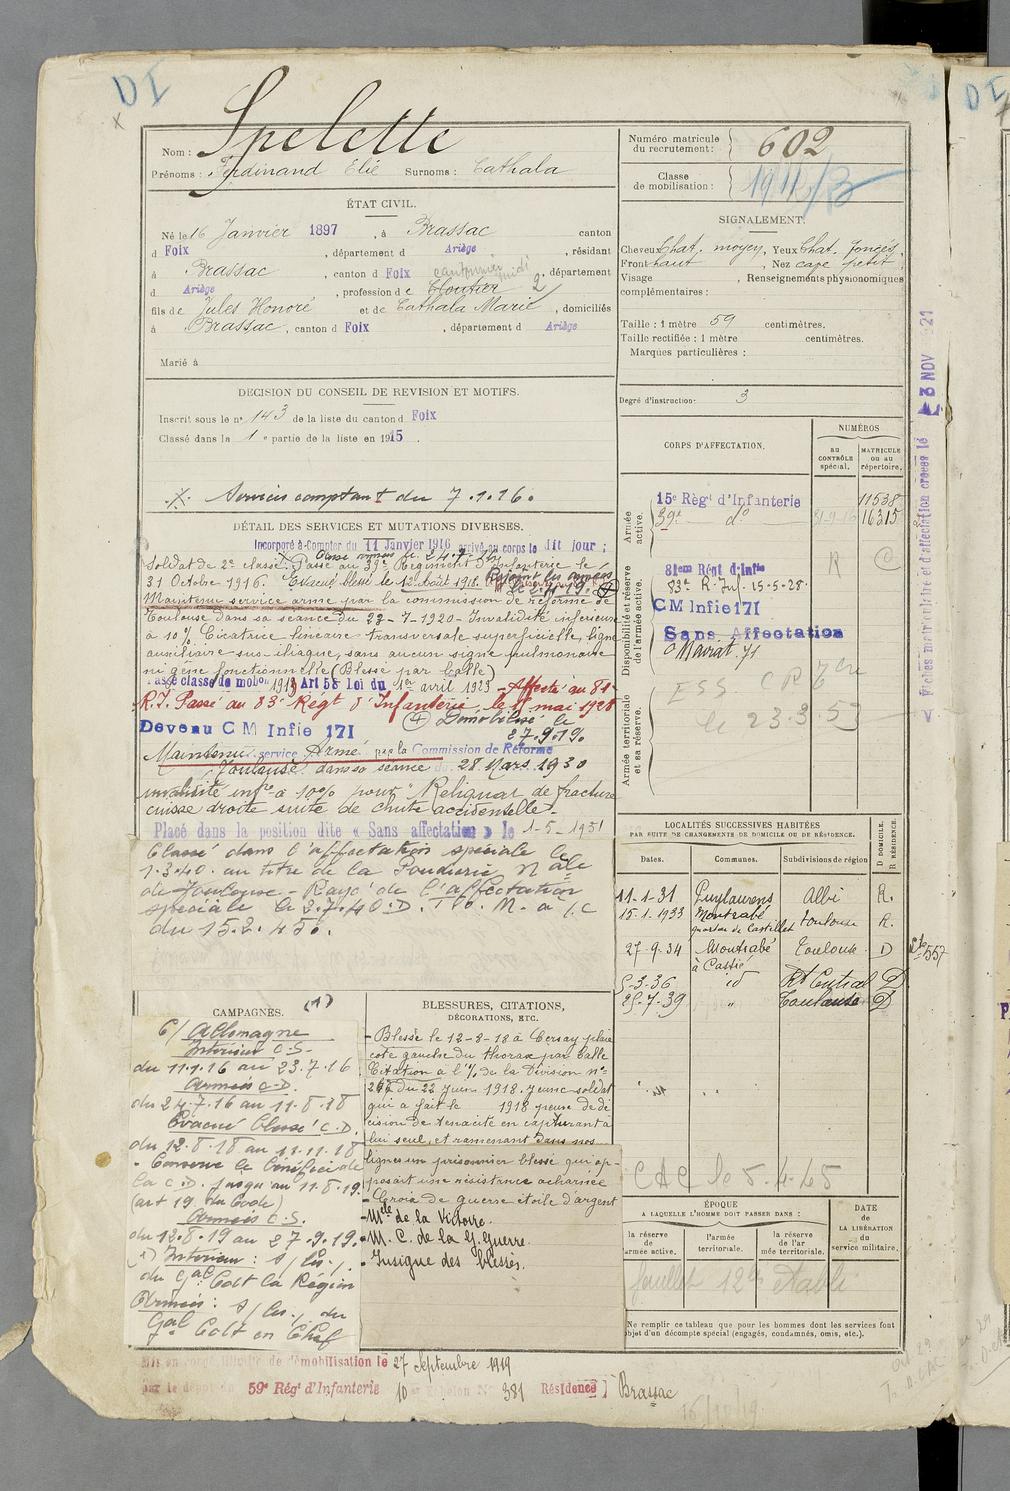 D I
Nom : Spelette
Prénoms : Ferdinand Elie Surnoms : Cathala
Numéro matricule du recrutement : 602
Classe de mobilisation :
ÉTAT CIVIL.
Né le 16 Janvier 1897, à Brassac canton
d Foix, département d Ariège, résidant
à Brassac, canton d Foix, département
d Ariège, profession de Cloutier 2
fils de Jules Honoré et de Cathala Marie, domiciliés
à Brassac, canton d Foix, département d Ariège
Marié à
SIGNALEMENT.
Cheveux Chat. moyen, Yeux Chat. foncés,
Front haut, Nez cave petit
Visage , Renseignements physionomiques
complémentaires :
Taille : 1 mètre 59 centimètres.
Taille rectifiée : 1 mètre centimètres.
Marques particulières :
Degré d'instruction : 3
DÉCISION DU CONSEIL DE REVISION ET MOTIFS.
Inscrit sous le n° 143 de la liste du canton d Foix
Classé dans la 1e partie de la liste en 1915.
X. Services comptant du 7.1.16.
DÉTAIL DES SERVICES ET MUTATIONS DIVERSES.
Incorporé à Compter du 11 Janvier 1916 arrivé au corps le dit jour ;
Soldat de 2e classe. Passé au 39e Régiment d'Infanterie le
31 Octobre 1916. Evacué blessé le 12 août 1918.
Maintenu service armé par la commission de réforme de
Toulouse dans sa séance du 23-7-1920 - Invalidité inférieure
à 10% Cicatrice linéaire transversale superficielle, ligne
auxiliaire sus-iliaque, sans aucun signe pulmonaire
ni gêne fonctionnelle (Blessé par balle)
Passé classe de mobon 1911 Art 58 Loi du 1er avril 1923 - Affecté au 81e
R.I. Passé au 83e Régt d'Infanterie, le 15 mai 1928
Démobilisé le
27.9.19
Devenu C M Infie 171
Maintenu service Armé par la Commission de Réforme
Toulouse dans sa séance du 28 Mars 1930
invalidité infre à 10% pour "Reliquat de fracture
cuisse droite suite de chute accidentelle.
Placé dans la position dite « Sans affectation » le 1-5-1931
Classé dans l'affectation spéciale le
1.3.40. au titre de la Poudrerie Nale
de Toulouse - Rayé de l'affectation
spéciale le 2.7.40.
du 15.2.45.
CORPS D'AFFECTATION.
NUMÉROS
AU CONTRÔLE spécial.
MATRICULE ou au répertoire.
Armée active.
15e Régt d'Infanterie 11538
39e do 16315
Disponibilité et réserve de l'armée active.
81em Régt d'Infie
83e R. Inf. 15-5-28
CM Infie 171
Sans Affectation
Armée territoriale et sa réserve.
le 23.3.53
Fiches matriculaire et d'affectation créées le 3 NOV
LOCALITÉS SUCCESSIVES HABITÉES
PAR SUITE DE CHANGEMENTS DE DOMICILE OU DE RÉSIDENCE.
Dates. Communes. Subdivisions de région D DOMICILE. R RÉSIDENCE.
11-1-31 Puylaurens Albi R.
15-1-1933 Montrabé Toulouse R.
27-9-34 Montrabé Toulouse D
5-3-36 id Rt Central D
25-7-39 " Toulouse D
CAMPAGNES.
C/ Allemagne
Intérieur C.S.
du 11.1.16 au 23.7.16
Armées C.D.
du 24.7.16 au 11.8.18
Evacué blessé C.D.
du 12.8.18 au 11.11.18
- Conserve le bénéfice de
la C.D. jusqu'au 11.8.19.
(art 19 du Code)
Armées C.S.
du 12.8.19 au 27.9.19.
(1) Intérieur :
du Gal Cdt la Région
Armées :
Gal Cdt en Chef
BLESSURES, CITATIONS,
DÉCORATIONS, ETC.
- Blessé le 12-8-18 à Cersay plaie
côté gauche du thorax par balle
Citation à l'% de la Division n°
du 22 Juin 1918. jeune soldat
qui a fait le 1918 preuve de dé
cision de ténacité en capturant à
lui seul, et ramenant dans nos
lignes un prisonnier blessé qui op-
posait une résistance acharnée
- Croix de guerre étoile d'argent
- Mlle de la Victoire.
- M. C. de la G. Guerre.
- Insigne des blessés.
CAC le 5.4.65
ÉPOQUE
A LAQUELLE L'HOMME DOIT PASSER DANS :
DATE DE LA LIBÉRATION du service militaire.
la réserve de l'armée active.
l'armée territoriale.
la réserve de l'armée territoriale.
feuillet 12bis établi
Ne remplir ce tableau que pour les hommes dont les services font
objet d'un décompte spécial (engagés, condamnés, omis, etc.).
Mis en congé illimité de démobilisation le 27 Septembre 1919
par le dépôt du 59e Régt d'Infanterie 10e Echelon N° 381 Résidence Brassac